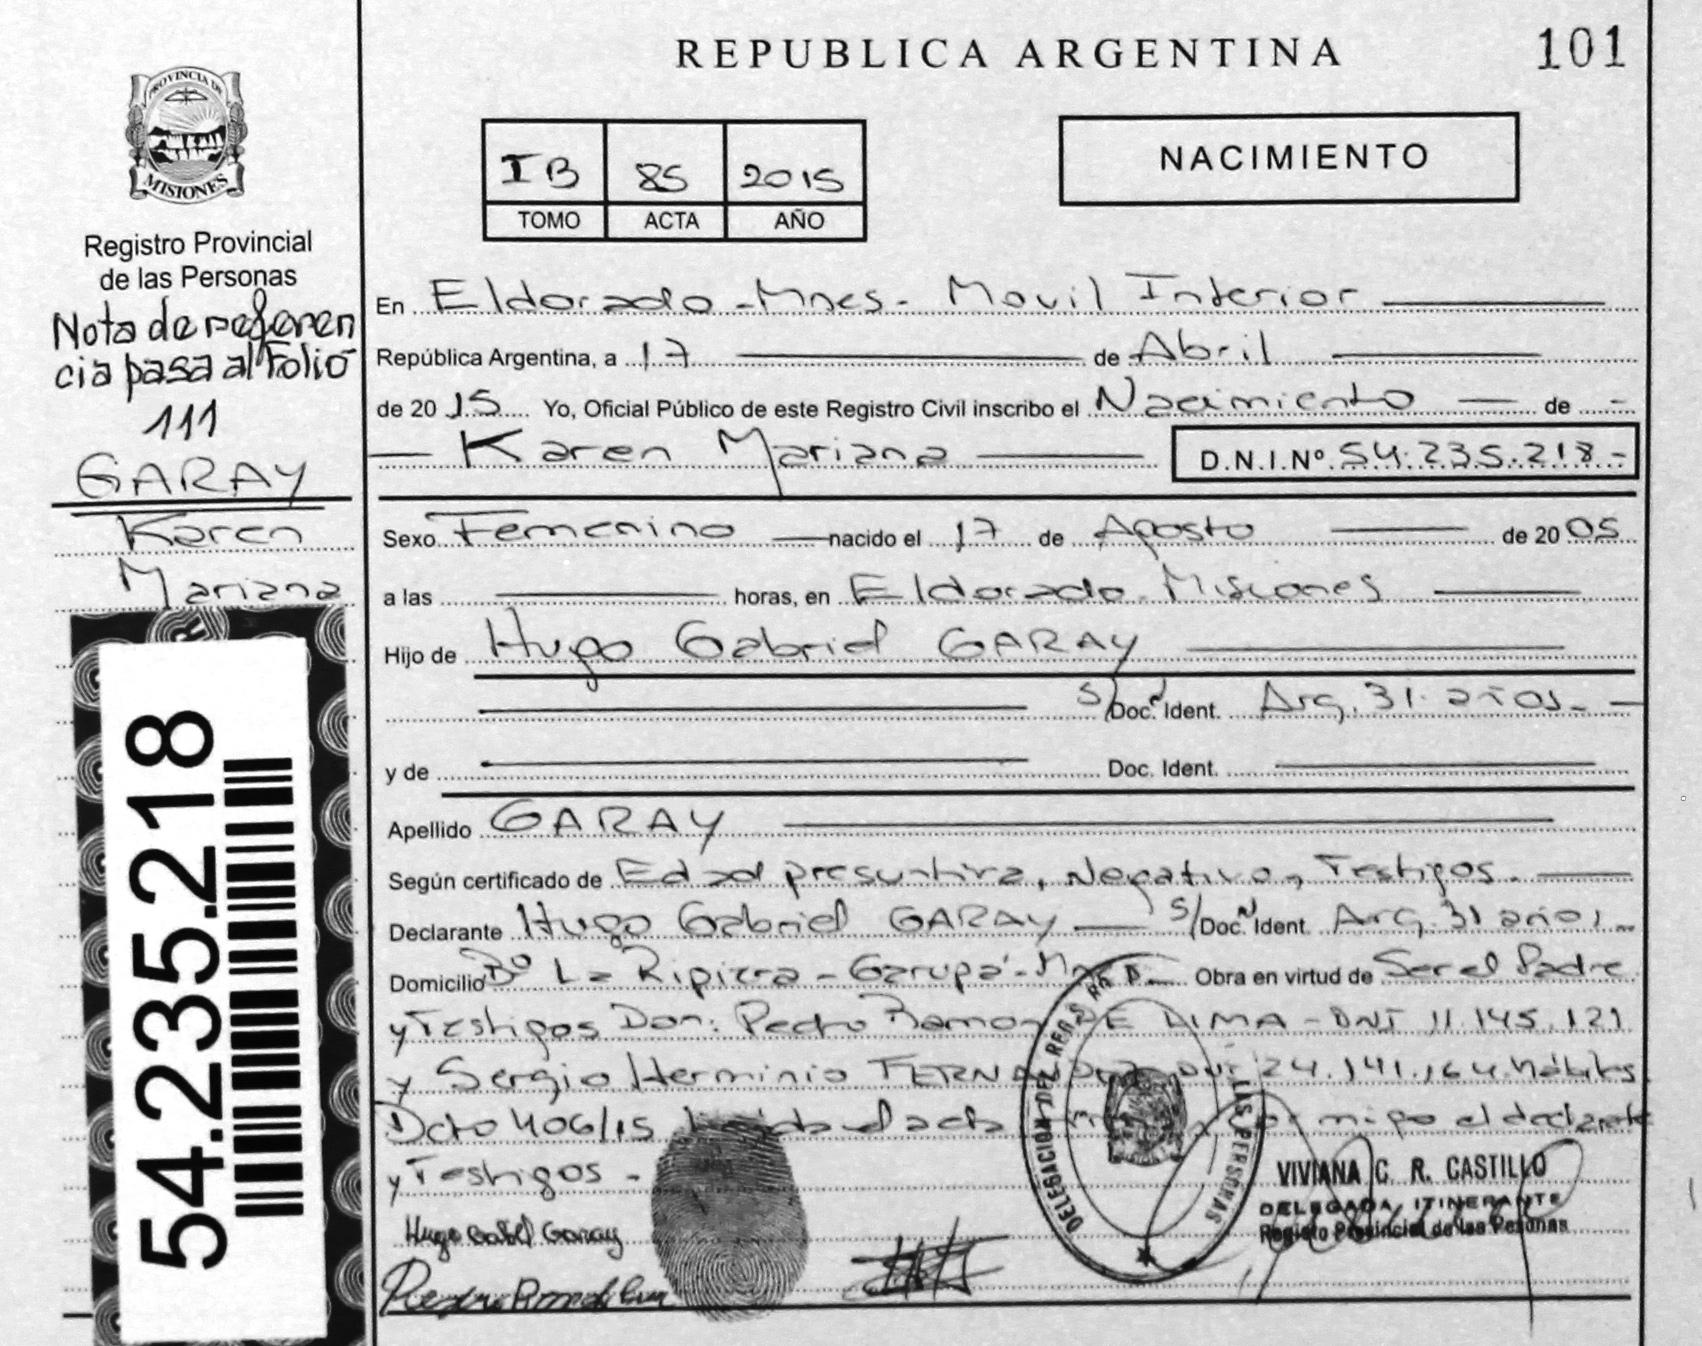 REPUBLICA ARGENTINA
101
PROVINCIA DE
MISIONES
Registro Provincial
de las Personas
Nota de referen
cia pasa al Folio
111
GARAY
Karen
Mariana
54.235.218
IB 85 2015
TOMO ACTA AÑO
NACIMIENTO
En Eldorado - Mnes - Movil Interior
República Argentina, a 17 de Abril
de 2015 Yo, Oficial Público de este Registro Civil inscribo el Nacimiento de
Karen Mariana D.N.I.Nº 54.235.218.-
Sexo Femenino nacido el 17 de Agosto de 2005
a las horas, en Eldorado Misiones
Hijo de Hugo Gabriel GARAY
S/Doc. Ident. Arg. 31 años.-
y de Doc. Ident.
Apellido GARAY
Según certificado de Edad presuntiva, Negativo, Testigos.
Declarante Hugo Gabriel GARAY S/Doc. Ident. Arg. 31 años.-
Domicilio Bº La Ripiera - Garupá - Obra en virtud de Ser el Padre
y Testigos Don: Pedro Ramon DE LIMA - DNI 11.145.121
y Sergio Herminio 24.141.164. hábiles
Dcto 406/15 acta el declarante
y Testigos -
Hugo Garay
DELEGACIÓN DEL REG. LAS PERSONAS
VIVIANA C. R. CASTILLO
DELEGADA ITINERANTE
Registro Provincial de las Personas